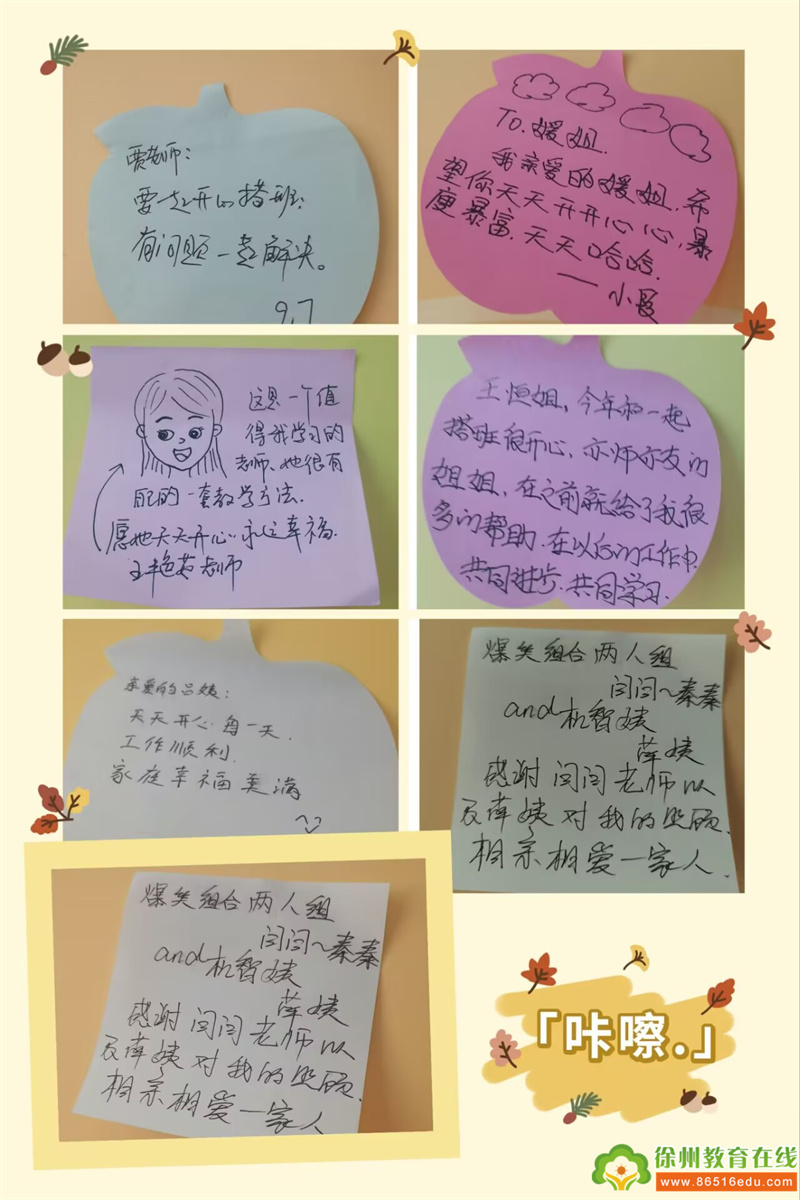 贾老师：
要一起开心搭班
有问题一起解决。
9.7
To.媛姐.
我亲爱的媛姐.希
望你天天开开心心,暴
度暴富.天天哈哈.
——小夏
这是一个值
得我学习的
老师、她很有
自己的一套教学方法.
愿她天天开心 永远幸福.
王艳若老师
王恒姐，今年和一起
搭班很开心，亦师亦友的
姐姐，在之前就给了我很
多的帮助.在以后的工作中.
共同进步.共同学习.
亲爱的吕姨：
天天开心每一天.
工作顺利.
家庭幸福美满
爆笑组合两人组
闫闫~秦秦
and机智姨
薛姨
感谢闫闫老师以
及薛姨对我的照顾.
相亲相爱一家人.
爆笑组合两人组
闫闫~秦秦
and机智姨
薛姨
感谢闫闫老师以
及薛姨对我的照顾.
相亲相爱一家人
「咔嚓.」
徐州教育在线
www.86516edu.com